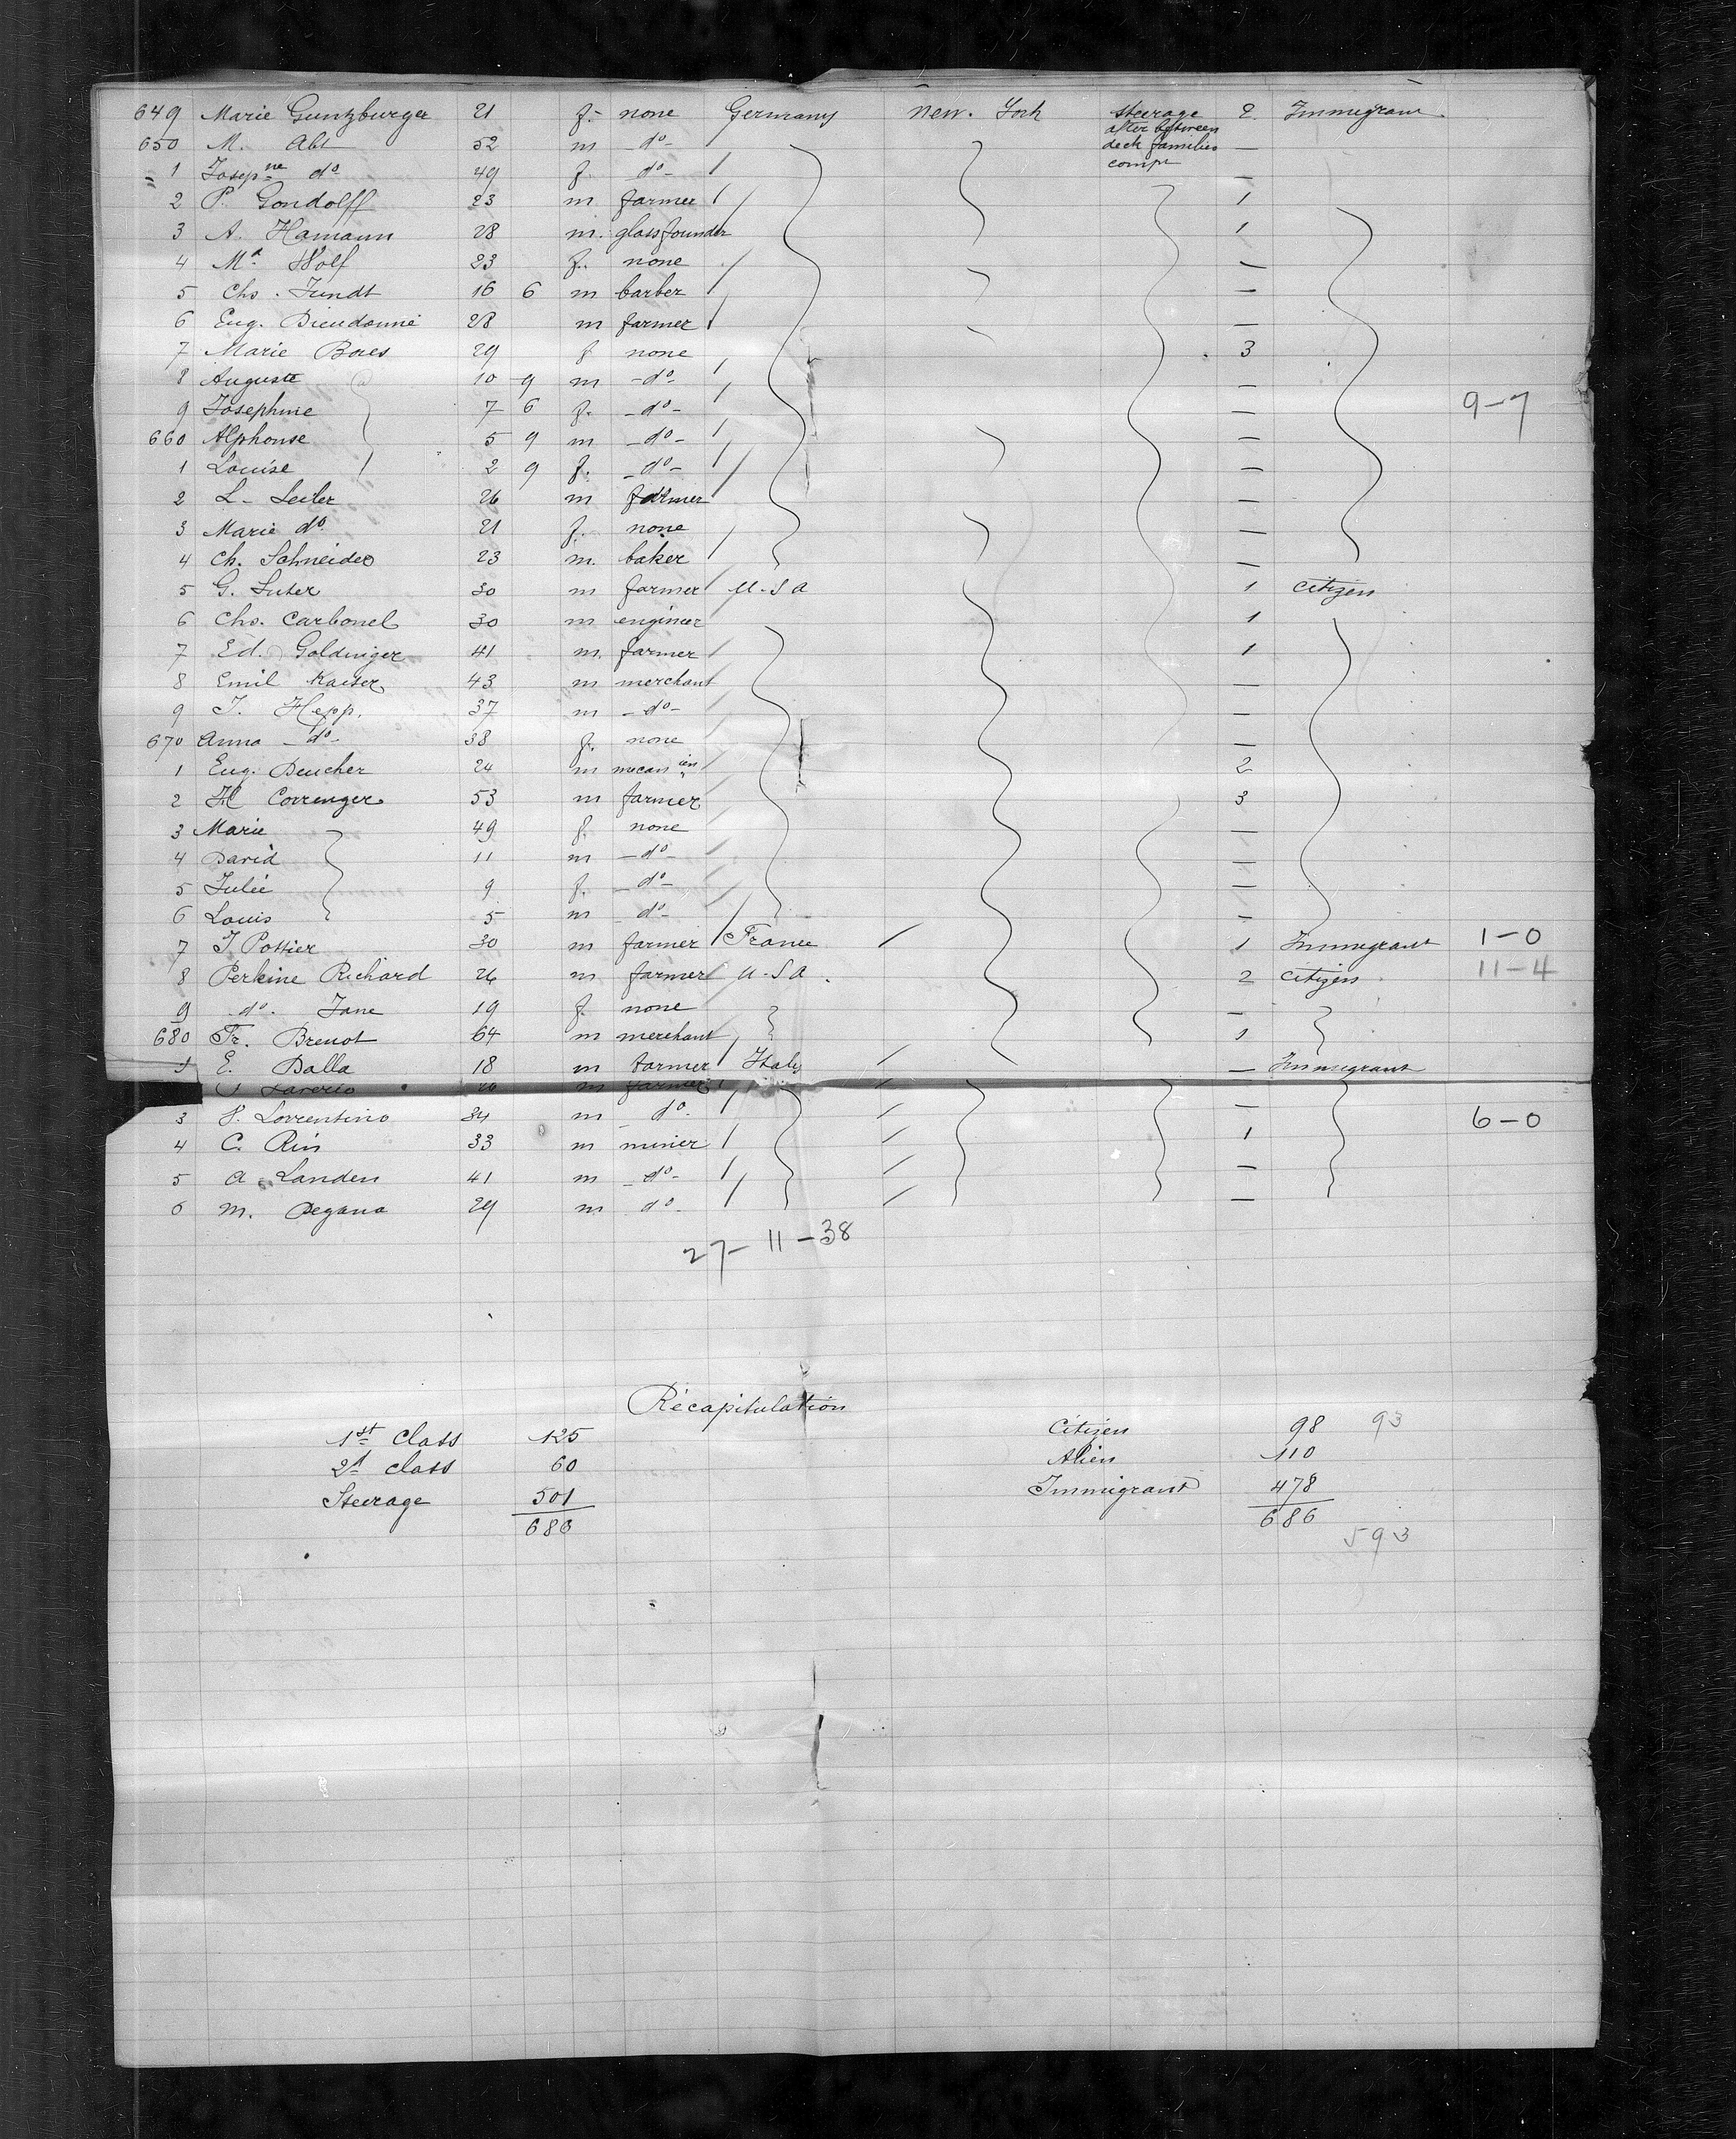 649 Marie Gunzburger 21 f. none Germany New. York steerage 2 Immigrant
after between
650 M. Abt 52 m -do- deck families —
compt
1 Josepne do 49 f. -do- —
2 P. Gondolff 23 m farmer 1
3 A. Hamann 28 m. glassfounder 1
4 Ma Wolf 23 f. none —
5 Chs. Jundt 16 6 m barber —
6 Eug. Dieudonné 28 m farmer —
7 Marie Bores 29 f none 3
8 Auguste 10 9 m -do- —
9 Josephine 7 6 f. -do- — 9-7
660 Alphonse 5 9 m -do- —
1 Louise 2 9 f. -do- —
2 L. Seiler 26 m farmer —
3 Marie do 21 f. none —
4 Ch. Schneider 23 m. baker —
5 G. Suter 30 m farmer U.S a 1 citizen
6 Chs. Carbonel 30 m engineer 1
7 Ed. Goldinger 41 m. farmer 1
8 Emil Kaiser 43 m merchant —
9 J. Hepp. 37 m -do- —
670 Anna -do- 38 f. none —
1 Eug. Deucher 24 m mecanien 2
2 H Correnger 53 m farmer 3
3 Marie 49 f. none —
4 David 11 m -do- —
5 Julie 9 f. -do- —
6 Louis 5 m do- —
7 J. Pottier 30 m farmer France 1 Immigrant 1-0
8 Perkine Richard 26 m farmer U.S a. 2 citizen 11-4
9 do. Jane 19 f. none —
680 Fr. Brenot 64 m merchant 1
1 E. Dalla 18 m farmer Italy — Immigrant
m farmer
3 P. Lorrentino 34 m do. — 6-0
4 C. Rin 33 m miner 1
5 a. Landen 41 m -do- —
6 m. Degana 29 m do. —
27-11-38
Récapitulation
1st class 125 Citizen 98 93
2d class 60 Alien 110
Steerage 501 Immigrant 478
686 686
593